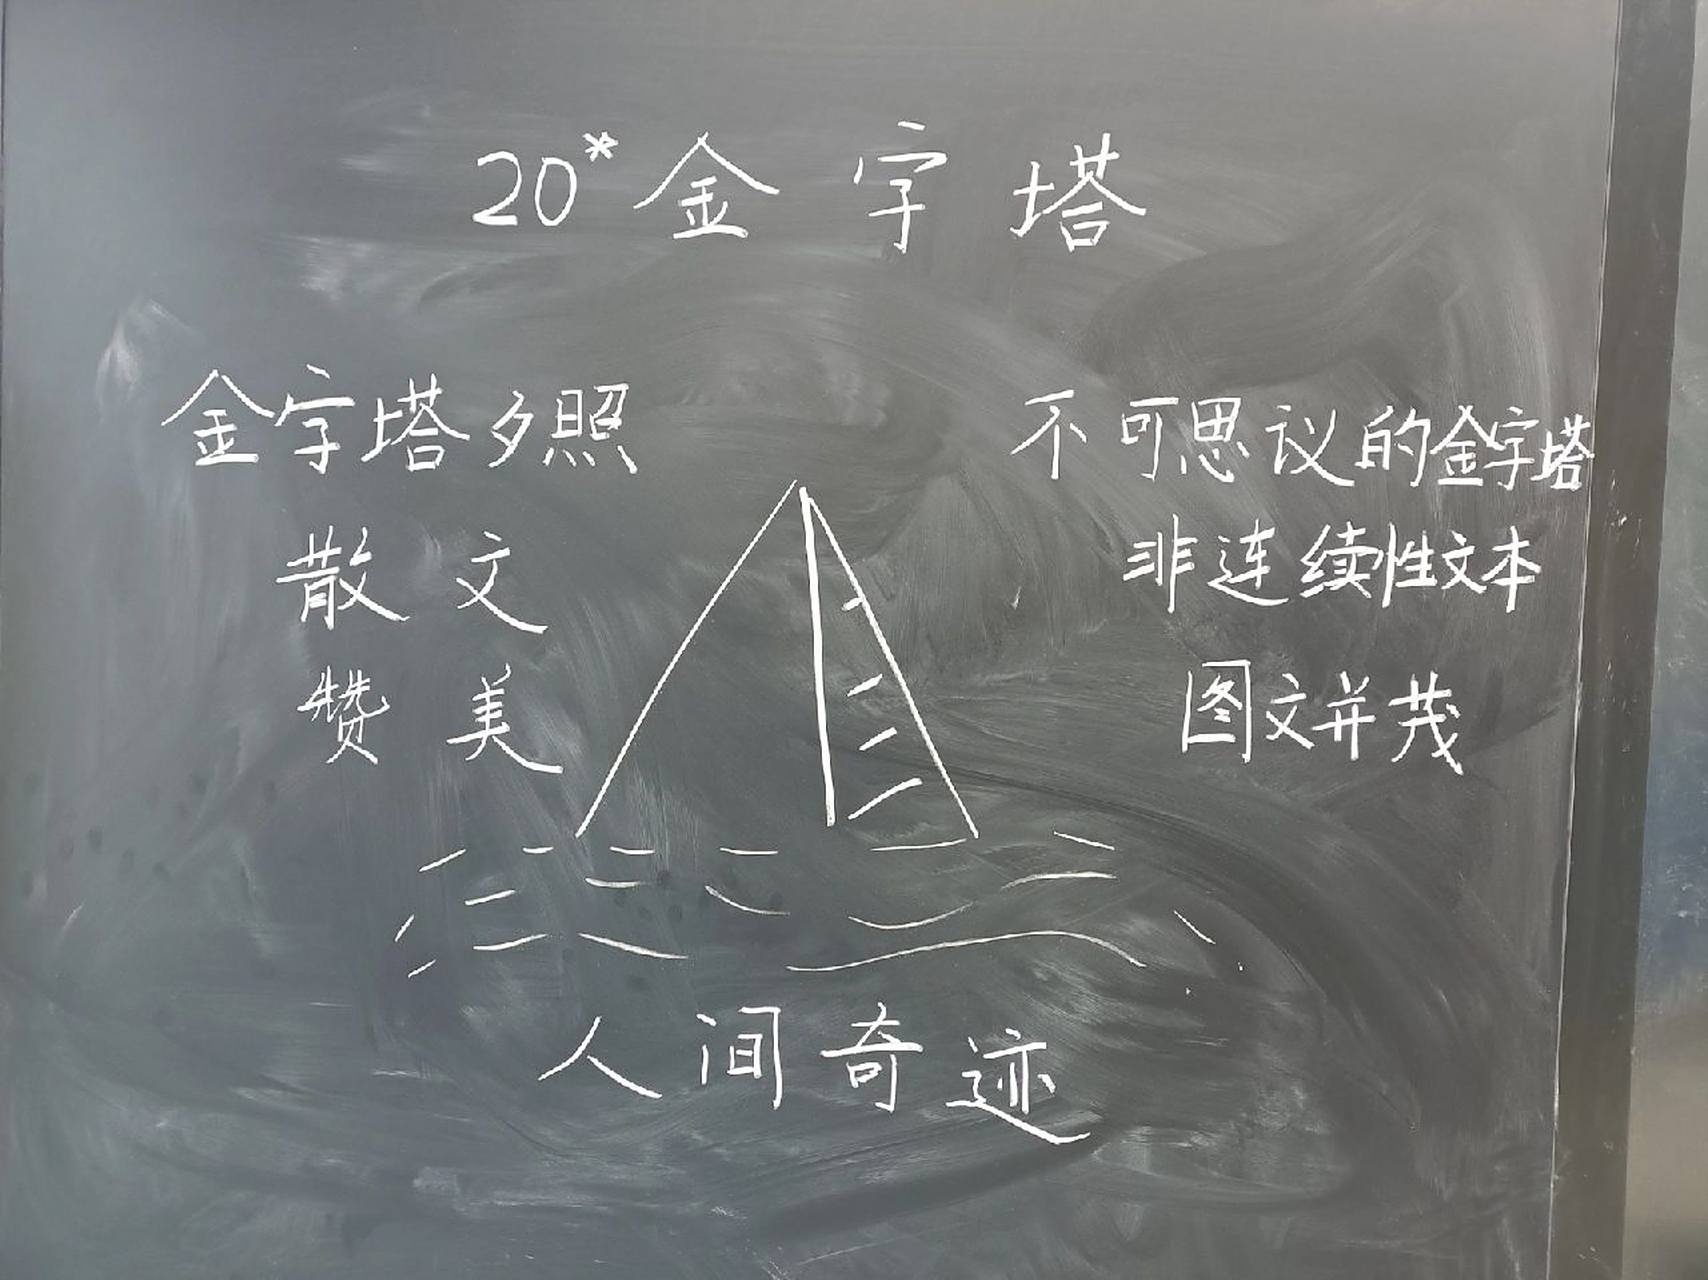 20*金字塔
金字塔夕照
散文
赞美
不可思议的金字塔
非连续性文本
图文并茂
人间奇迹